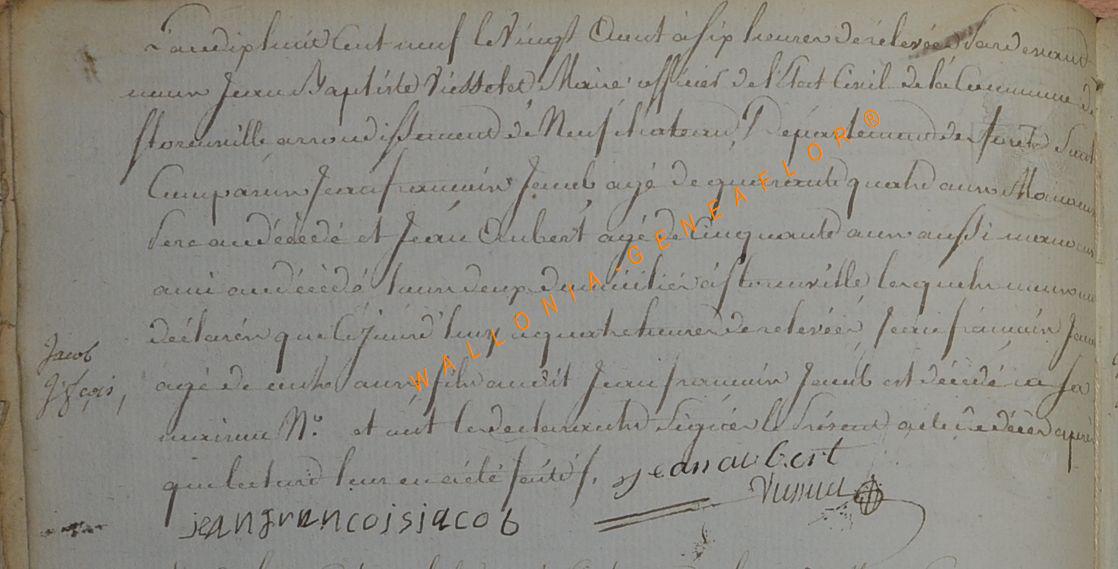 L'an dix huit Cent neuf le Vingt Aout à six heures de relevée Pardevant
nous Jean Baptiste Maire officier de l'Etat Civil de la Commune de
arrondissement de Neufchateau Departement des forets Sont
Comparus Jean francois Jacob agé de quarante quatre ans Manoeuvre
Pere au décédé et Jean Aubert agé de Cinquante ans aussi manoeuvre
ami au décédé tous deux domiciliés à lesquels nous ont
déclarés que Cejourd'huy a quatre heures de relevée Jean francois Jacob
Jacob
Jn fçois,
agé de ans fils audit Jean francois Jacob est décédé en sa
maison No. et ont les declarants Signés le Présent acte de décès apres
que lecture leur en a été
jean aubert
WALLONIA-GENEAFLOR ®
jeanfrancoisjacob